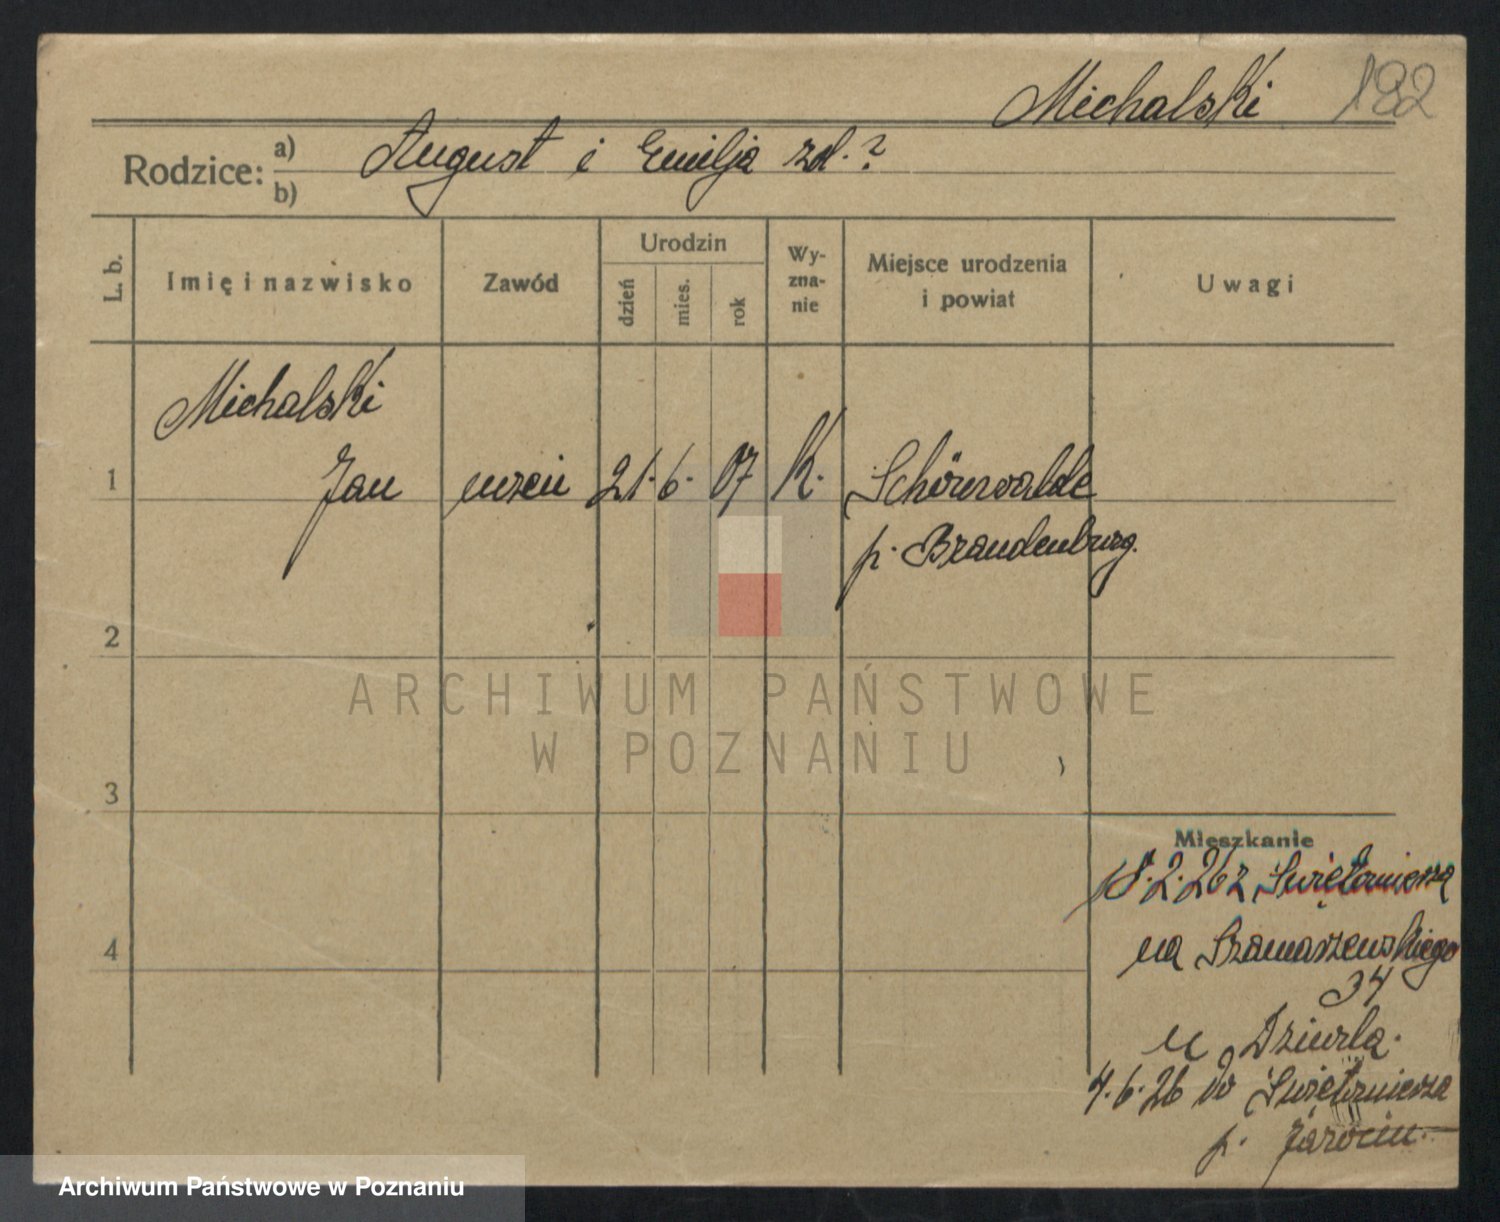 Michalski 182
Rodzice: a) August i Emilja zd. ?
b)
L. b.
Imię i nazwisko
Zawód
Urodzin
dzień
mies.
rok
Wy-
zna-
nie
Miejsce urodzenia
i powiat
Uwagi
Michalski
1 Jan uczeń 21. 6. 07 K. Schönwalde
p. Brandenburg.
2
ARCHIWUM PAŃSTWOWE
W POZNANIU
3
Mieszkanie
8.2.26 z
na Szamarzewskiego
34
u Dziurla.
4
4.6.26 do
p. Jarocin.
Archiwum Państwowe w Poznaniu